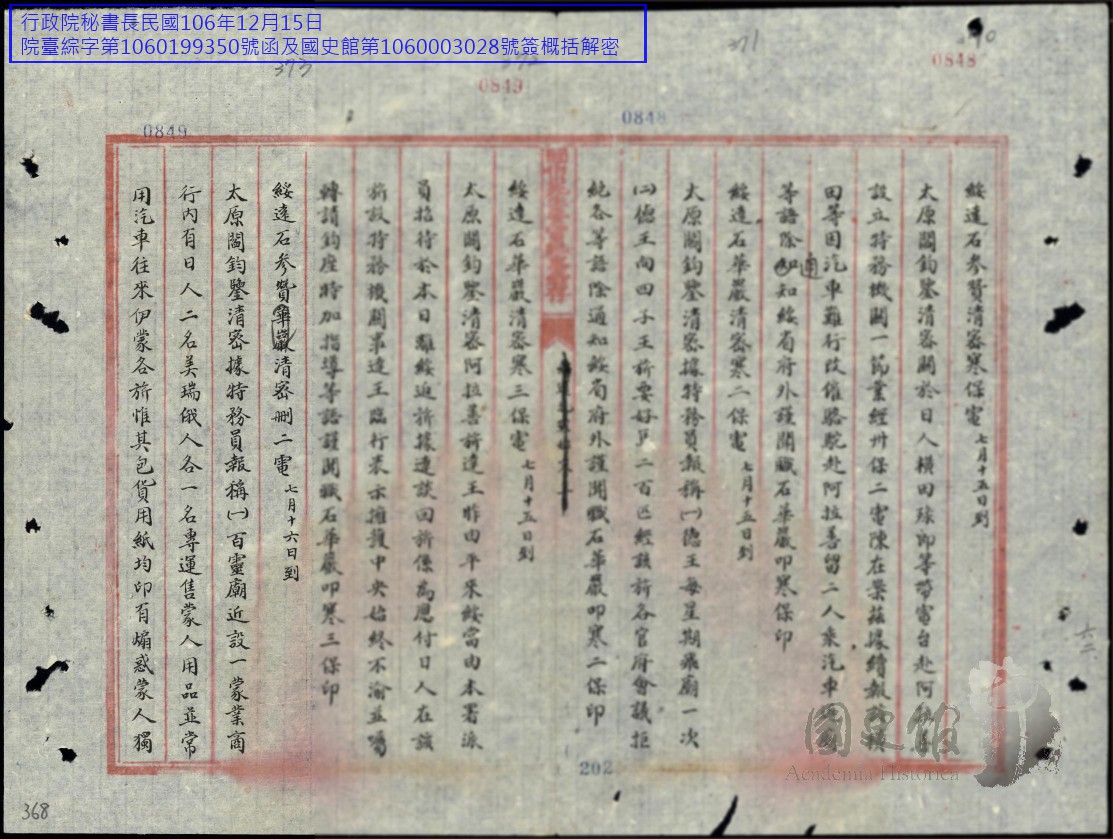 行政院秘書長民國106年12月15日
院臺綜字第1060199350號函及國史館第1060003028號簽概括解密
371
373
0848
0849
0848
0849
綏遠石參贊清密寒保電 七月十五日到
太原閻鈞鑒清密關於日人橫田等帶電台赴阿
設立特務機關一節業經卅保二電陳在案茲據續報該
田等因汽車難行改僱駱駝赴阿拉善留二人乘汽車
等語除通知綏省府外謹聞職石華嚴叩寒保印
綏遠石華嚴清密寒二保電 七月十五日到
太原閻鈞鑒清密據特務員報稱㈠德王每星期來廟一次
㈡德王向四子王旂要好馬二百匹經該旂各官府會議拒
絕各等語除通知綏省府外謹聞職石華嚴叩寒二保印
綏遠石華嚴清密寒三保電 七月十五日到
太原閻鈞鑒清密阿拉善旂達王昨由平來綏當由本署派
員招待於本日離綏返旂據達談回旂係為應付日人在該
旂設特務機關事達王臨行表示擁護中央始終不渝並囑
轉請鈞座時加指導等語謹聞職石華嚴叩寒三保印
綏遠石參贊華嚴清密刪二電 七月十六日到
太原閻鈞鑒清密據特務員報稱㈠百靈廟近設一蒙業商
行內有日人二名美瑞俄人各一名專運售蒙人用品並常
用汽車往來伊蒙各旂惟其包貨用紙均印有煽惑蒙人獨
202
368
國史館
Academia Historica